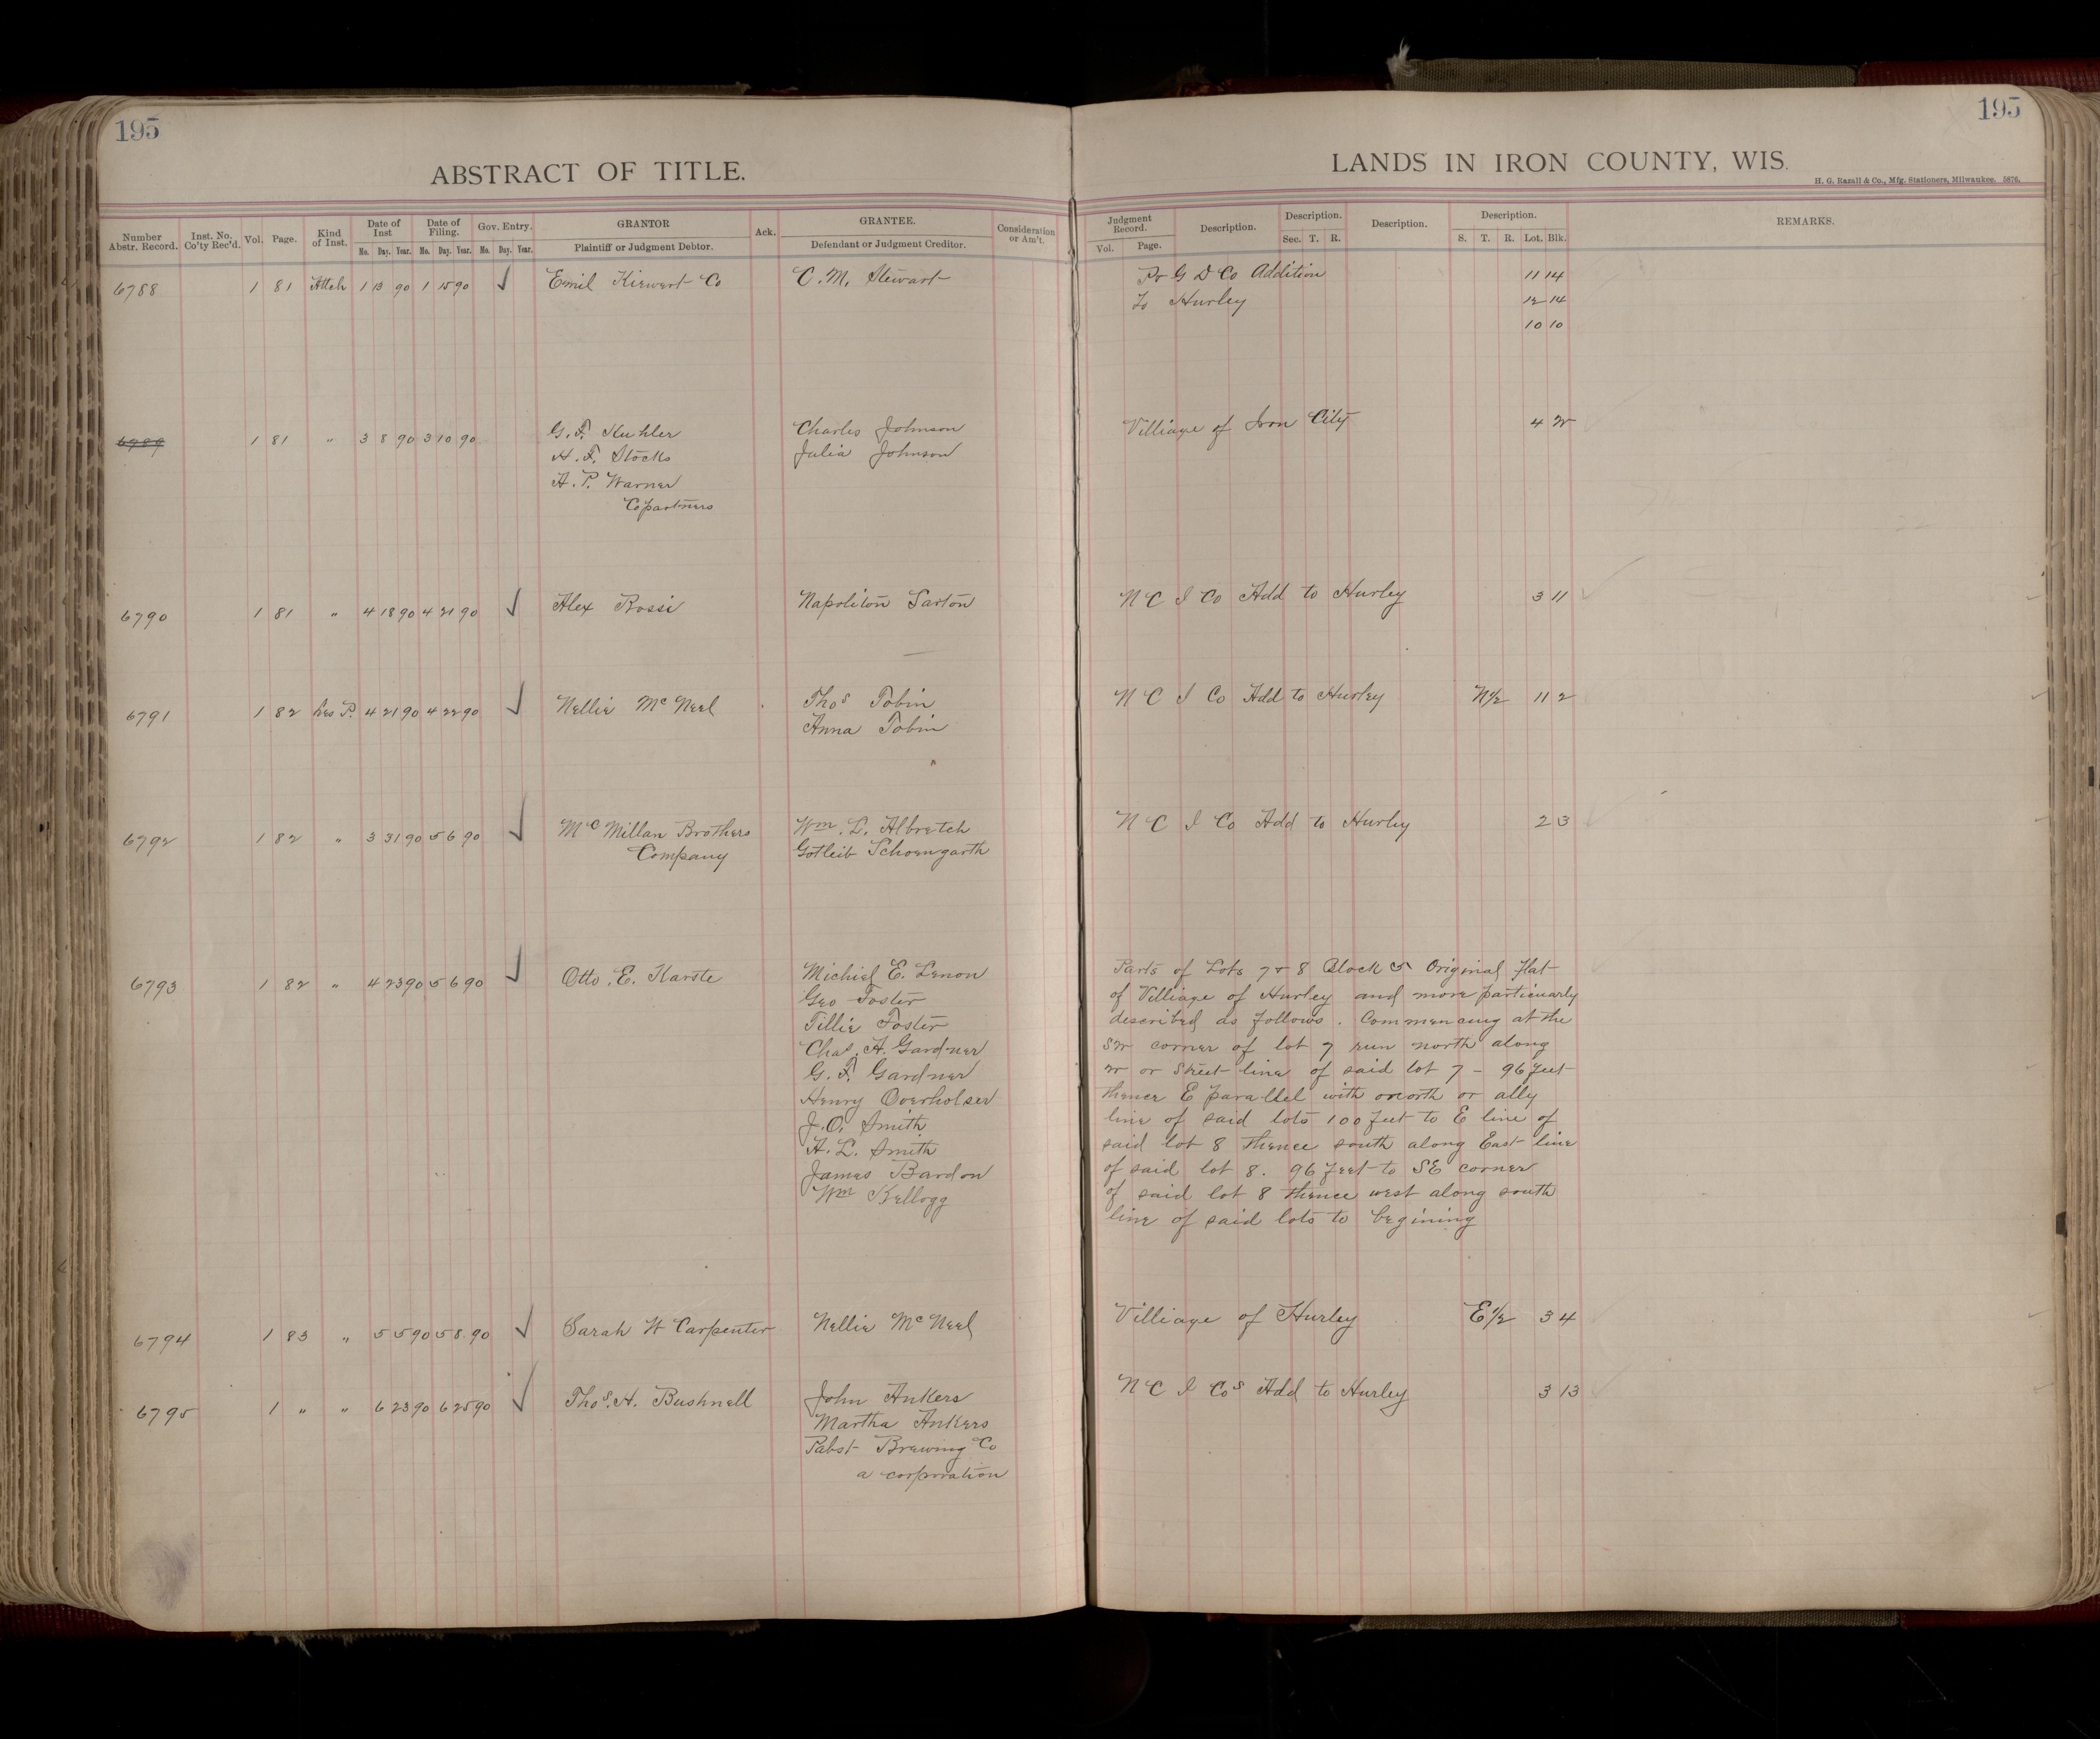 195
195
ABSTRACT OF TITLE.
LANDS IN IRON COUNTY, WIS.
H. G. Razall & Co., Mfg. Stationers, Milwaukee. 5876.
Number Abstr. Record. Inst. No. Co'ty Rec'd. Vol. Page. Kind of Inst. Date of Inst Date of Filing. Gov. Entry. GRANTOR Ack. GRANTEE. Consideration or Am't. Judgment Record. Description. Description. Description. Description. REMARKS.
No. Day. Year. No. Day. Year. No. Day. Year. Plaintiff or Judgment Debtor. Defendant or Judgment Creditor. Vol. Page. Sec. T. R. S. T. R. Lot. Blk.
6788 1 81 Attch 1 13 90 1 15 90 ✓ Emil Kiewert Co C. M. Stewart Po G D Co Addition 11 14
To Hurley 12 14
10 10
6789 1 81 " 3 8 90 3 10 90 G. F. Kuhler Charles Johnson Villiage of Iron City 4 2
H. F. Stocks Julia Johnson
A. P. Warner
Copartners
6790 1 81 " 4 18 90 4 21 90 ✓ Alex Rossi Napoliton Sarton N C I Co Add to Hurley 3 11
6791 1 82 Les P. 4 21 90 4 22 90 ✓ Nellie Mc Neel Thos Tobin N C I Co Add to Hurley N 1/2 11 2
Anna Tobin
6792 1 82 " 3 31 90 5 6 90 ✓ Mc Millan Brothers Wm. L. Albretch N C I Co Add to Hurley 2 3
Company Gotleib Schoengarth
6793 1 82 " 4 23 90 5 6 90 ✓ Otto. E. Karste Michiel E. Lenon Parts of Lots 7 & 8 Block 5 Original Plat
Geo Foster of Villiage of Hurley and more particuarly
Tillie Foster described as follows. Commencing at the
Chas. A. Gardner SW corner of lot 7 run north along
G. F. Gardner W or Street line of said lot 7 - 96 feet
Henry Overholser thence E parallel with north or ally
J. O. Smith line of said lots 100 feet to E line of
A. L. Smith said lot 8 thence south along East line
James Bardon of said lot 8. 96 feet to SE corner
Wm Kellogg of said lot 8 thence west along south
line of said lots to begining
6794 1 83 " 5 5 90 5 8 90 ✓ Sarah W Carpenter Nellie Mc Neel Villiage of Hurley E 1/2 3 4
6795 1 " " 6 23 90 6 25 90 ✓ Thos. H. Bushnell John Ankers N C I Cos Add to Hurley 3 13
Martha Ankers
Pabst Brewing Co
a corporation